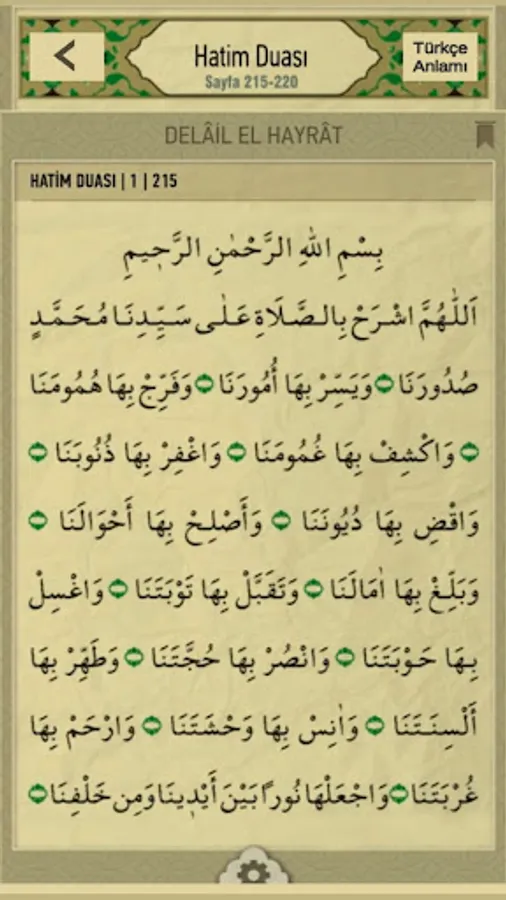 Hatim Duası
Sayfa 215-220
Türkçe
Anlamı
DELÂİL EL HAYRÂT
HATİM DUASI | 1 | 215
بِسْمِ اللهِ الرَّحْمٰنِ الرَّحٖيمِ
اَللّٰهُمَّ اشْرَحْ بِالصَّلَاةِ عَلٰى سَيِّدِنَا مُحَمَّدٍ
صُدُورَنَا وَيَسِّرْ بِهَا أُمُورَنَا وَفَرِّجْ بِهَا هُمُومَنَا
وَاكْشِفْ بِهَا غُمُومَنَا وَاغْفِرْ بِهَا ذُنُوبَنَا
وَاقْضِ بِهَا دُيُونَنَا وَأَصْلِحْ بِهَا أَحْوَالَنَا
وَبَلِّغْ بِهَا اٰمَالَنَا وَتَقَبَّلْ بِهَا تَوْبَتَنَا وَاغْسِلْ
بِهَا حَوْبَتَنَا وَانْصُرْ بِهَا حُجَّتَنَا وَطَهِّرْ بِهَا
أَلْسِنَتَنَا وَاٰنِسْ بِهَا وَحْشَتَنَا وَارْحَمْ بِهَا
غُرْبَتَنَا وَاجْعَلْهَا نُورًا بَيْنَ أَيْدٖينَا وَمِن خَلْفِنَا